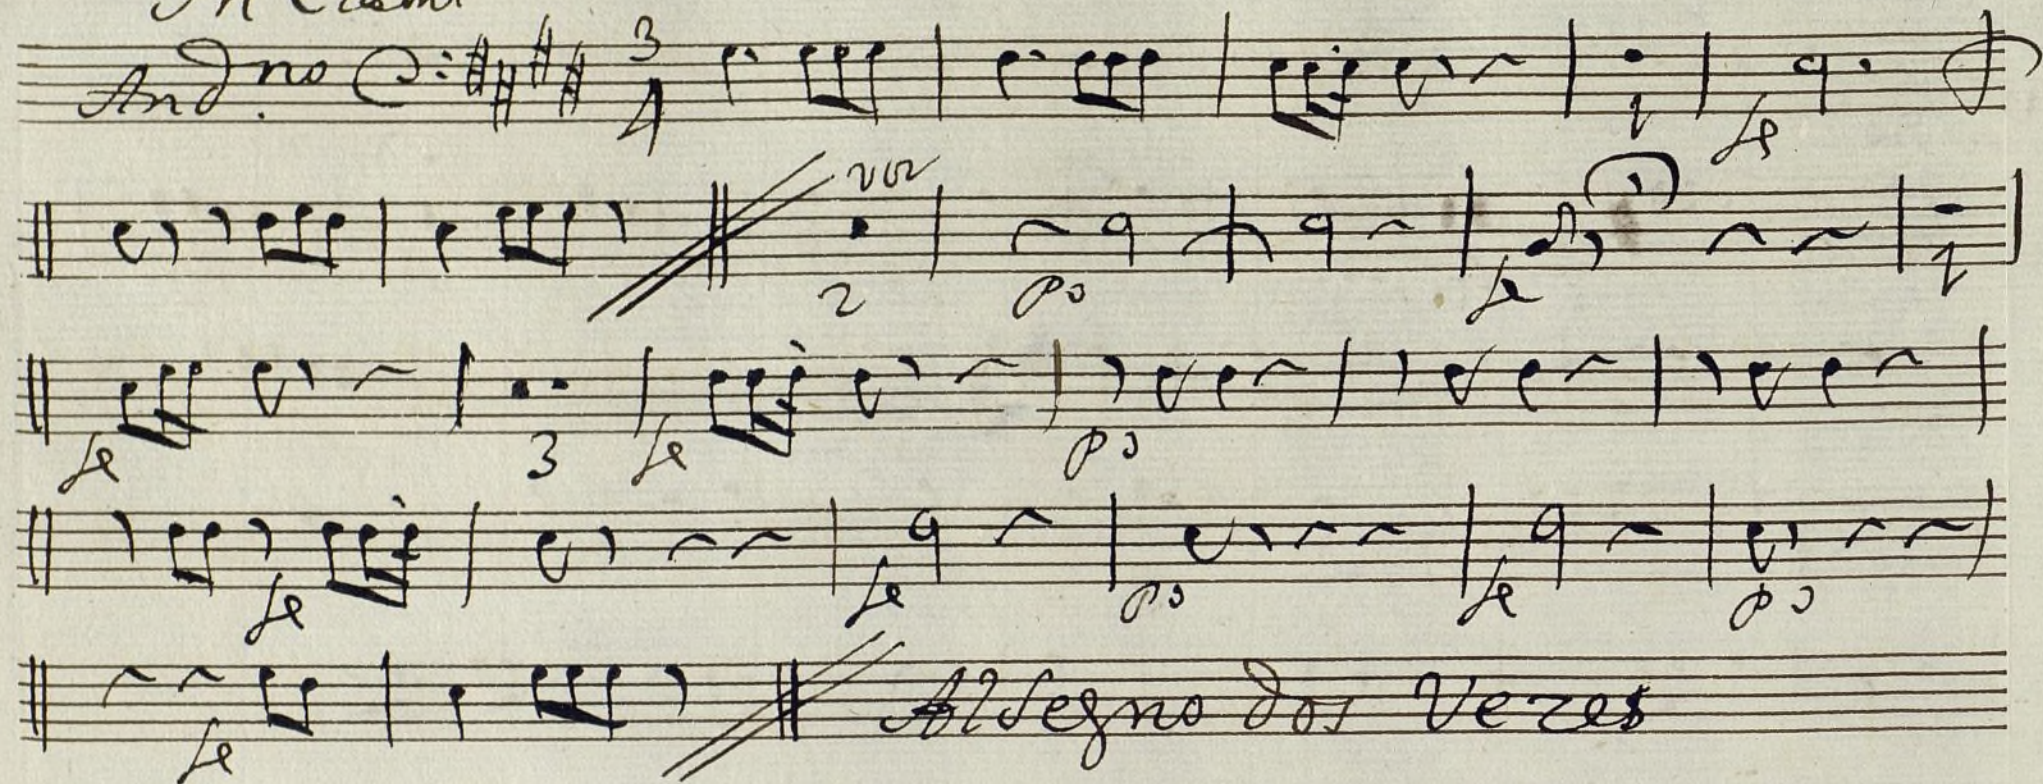 And.no 3 4 1 fe
voz 2 po fe 1
fe 3 fe po
fe fe po fe po
fe Al Segno dos Vezes